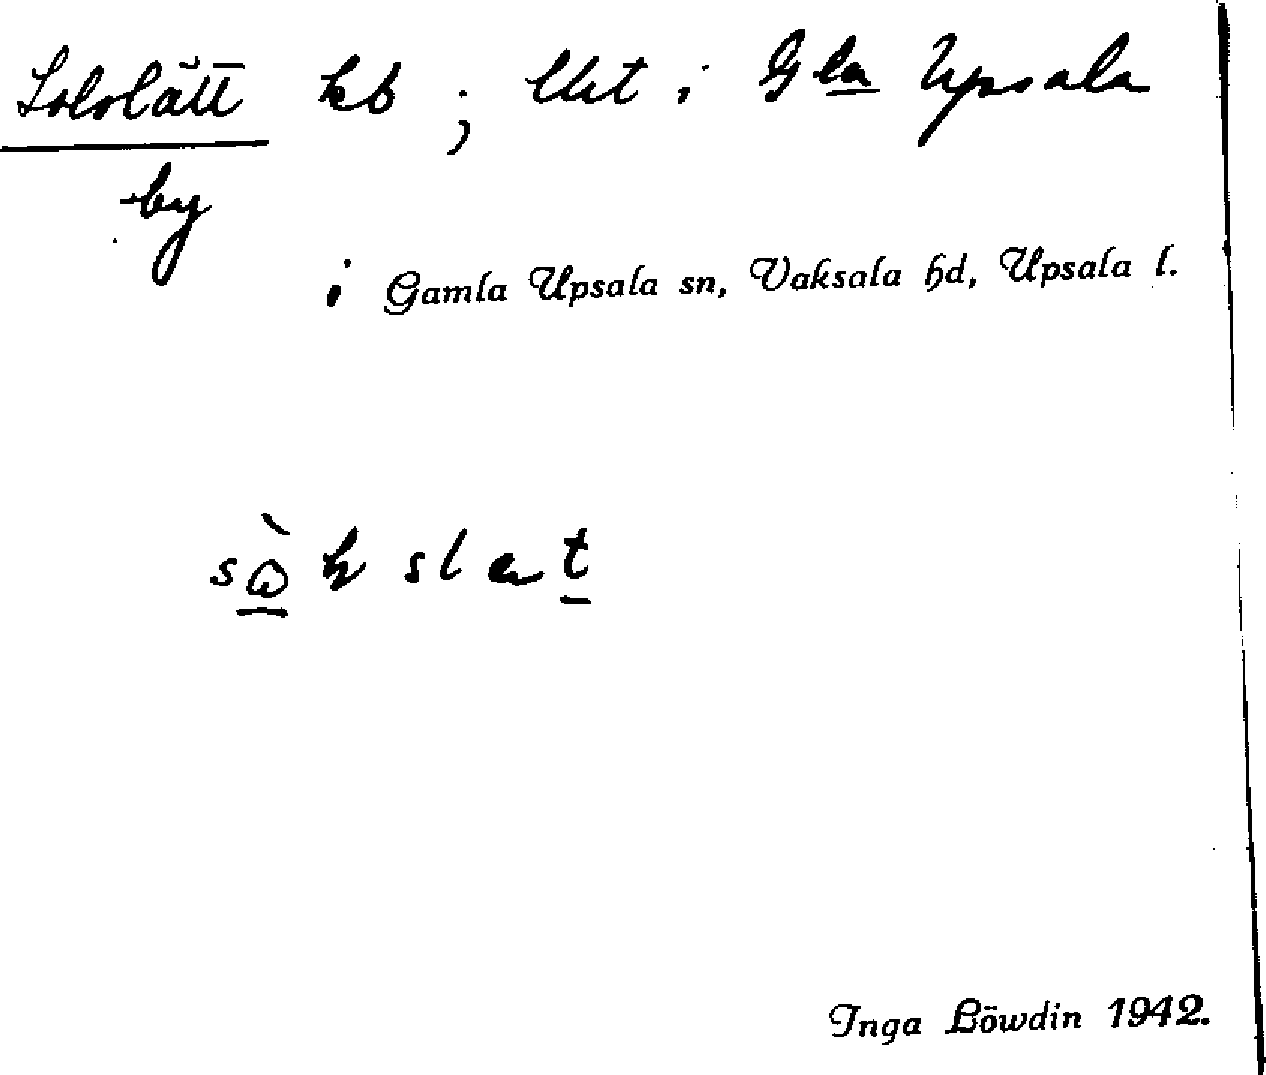 Solslätt kb ; litet i Gla Upsala
by
i Gamla Upsala sn, Vaksala hd, Upsala l.
Inga Löwdin 1942.